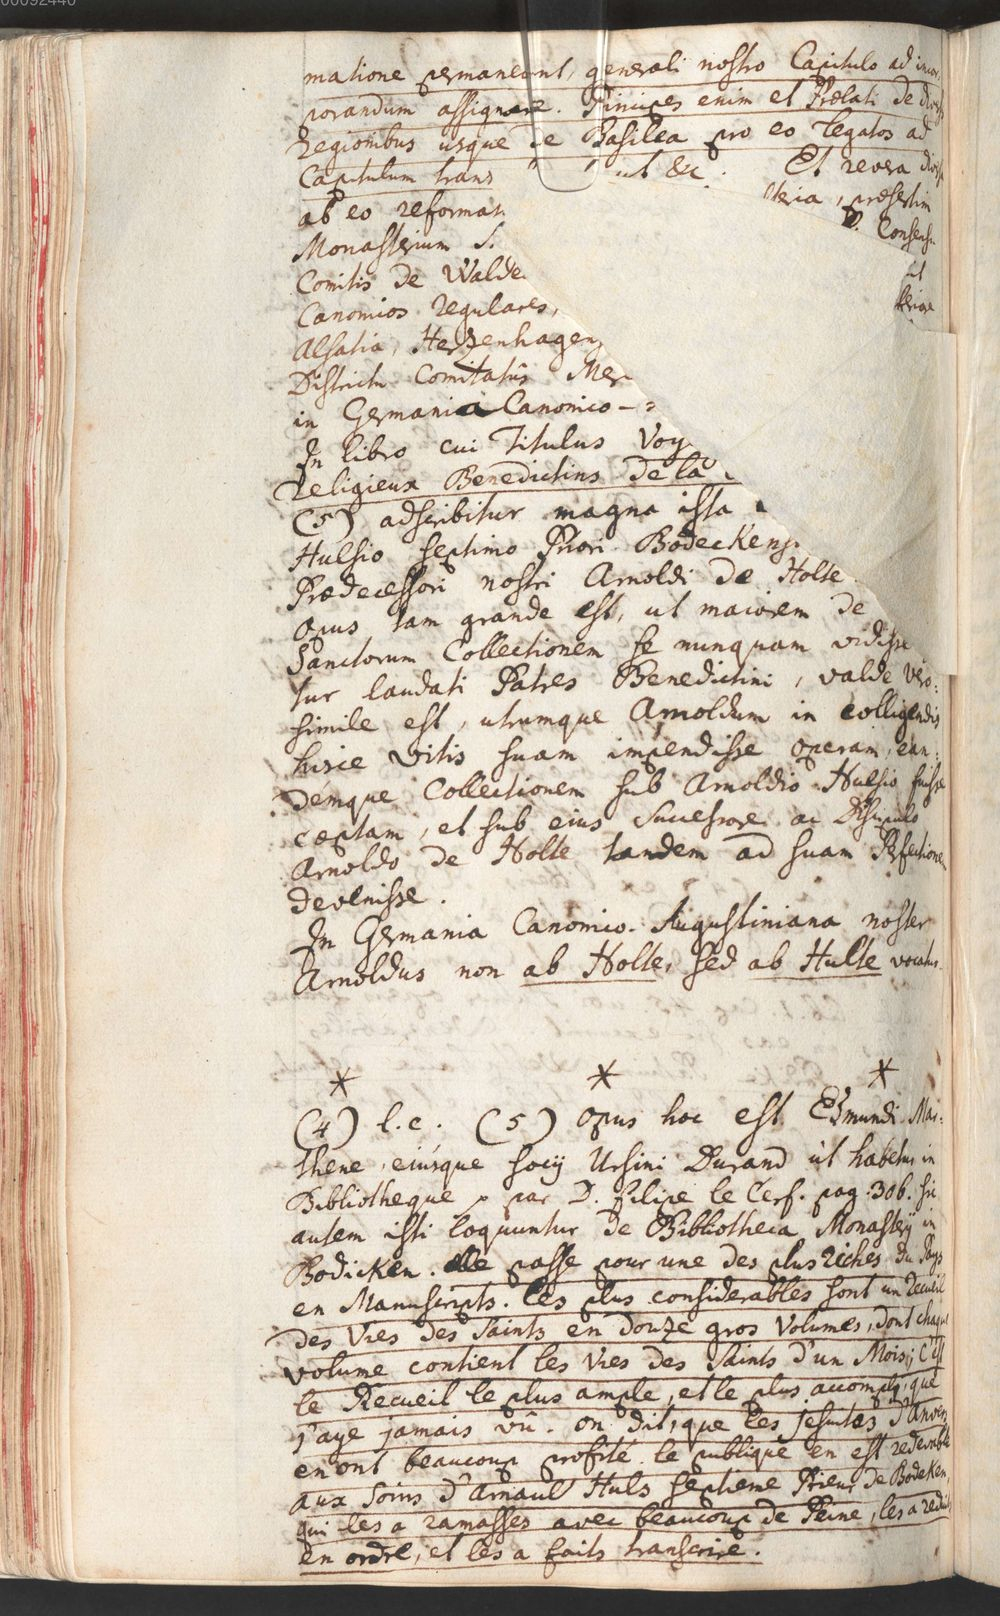 00092440
matione permaneant, generali nostro Capitulo ad incor
porandum assignare. Principes enim et Prælati de
Regionibus usque de Basilea pro eo legatos ad
Capitulum trans ut &c. Et revera
ab eo reformat præsertim
Monasterium S. D. Consensu
Comitis de Walde
Canonicos regulares,
Alsatia, Hertzenhagen
Districtu Comitatûs Mer
in Germania Canonico-
In libro cui Titulus Voy
religieux Benedictins de la
(5) adscribitur magna ista
Hulsio septimo Priori Bodeckens
Prædecessori nostri Arnoldi de Holte
opus tam grande est, ut maiorem de
Sanctorum Collectionem se nunquam vidisse
tur laudati Patres Benedictini, valde vero:
simile est, utrumque Arnoldum in colligendis
hisce vitis suam impendisse operam, ean:
demque Collectionem sub Arnoldio Hulsio fuisse
cœptam, et sub eius Successore ac Discipulo
Arnoldo de Holte tandem ad suam Perfectionem
devenisse.
In Germania Canonico-Augustiniana noster
Arnoldus non ab Holte, sed ab Hulte vocatus.
* * *
(4) l.c. (5) opus hoc est Edmundi Mar:
thene, eiusque socij Ursini Durand ut habetur in
Bibliotheque par D. Filipe le Cerf. pag. 306. sic
autem isti loquuntur de Bibliotheca Monasterij in
Bodicken. elle passe pour une des plus riches du Pays
en Manuscripts. les plus considerables sont un Recueil
des Vies des Saints en douze gros Volumes, dont chaque
volume contient les Vies des Saints d'un Mois; C'est
le Recueil le plus ample, et le plus accomply, que
j'aye jamais vû. on dit, que les jesuites d'Anvers
en ont beaucoup profité. le publique en est redevable
aux Soins d'Arnaul Huls septieme Prieur de Bodeken,
qui les a ramasses avec beaucoup de Peine, les a reduit
en ordre, et les a faits transcrire.